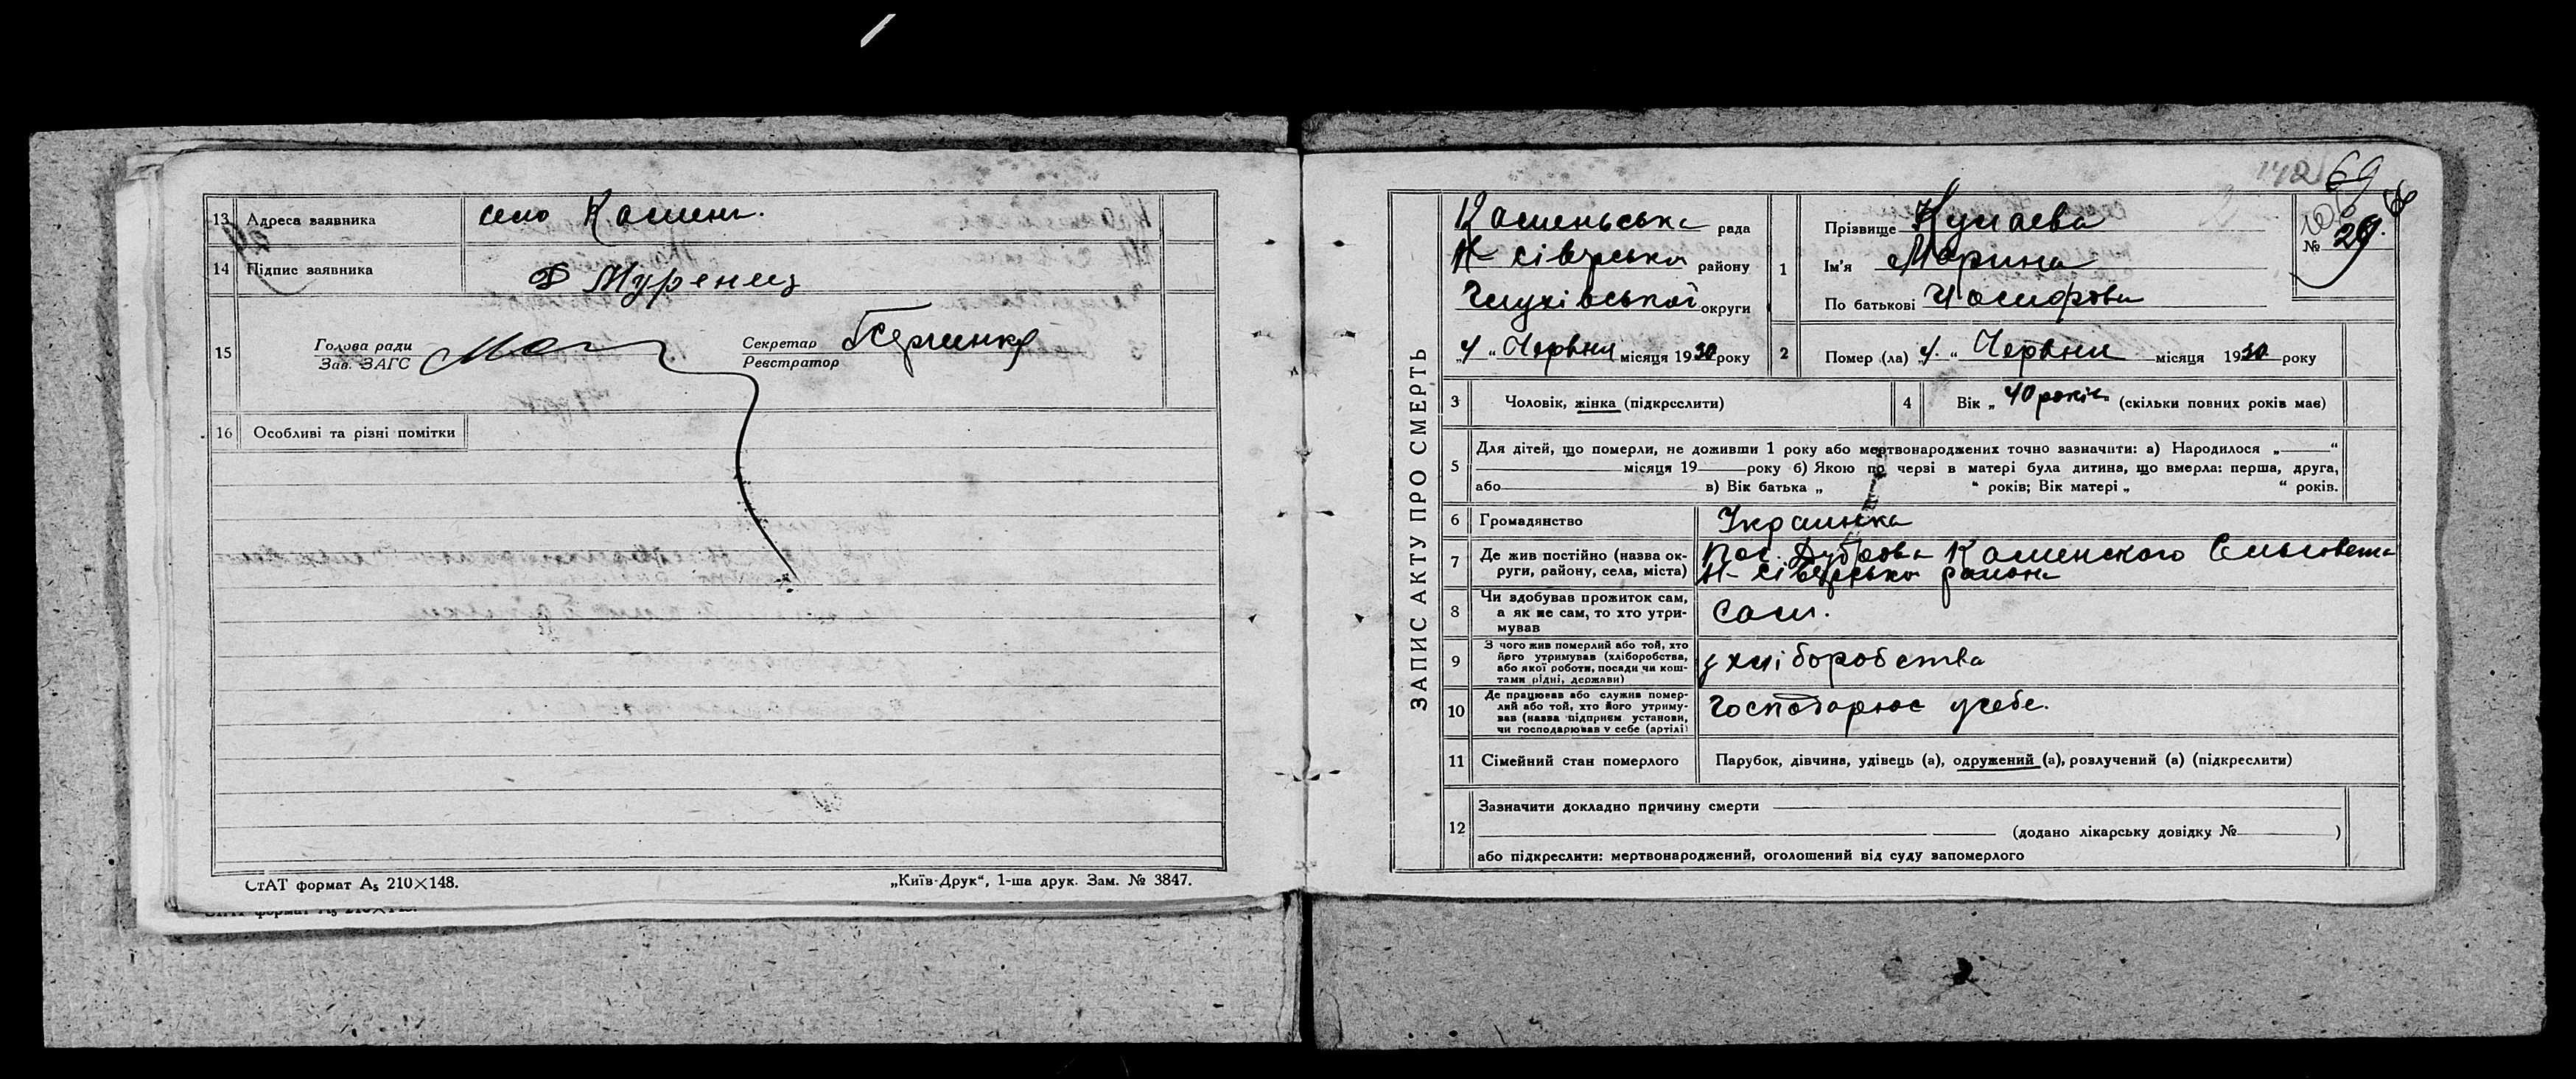 13 Адреса заявника село Камень.
14 Підпис заявника Ф Муренец
15 Голова ради
Зав. ЗАГС
Секретар
Реєстратор
16 Особливі та різні помітки
СтАТ формат А₅ 210×148.
„Київ-Друк“, 1-ша друк. Зам. № 3847.
ЗАПИС АКТУ ПРО СМЕРТЬ
142 69
Каменьська рада
Н-сіверська району
Глухівської округи
„4“ Червня місяця 1930 року
1 Прізвище Кунаева
Ім'я Марина
По батькові Иосифовн
№ 29.
2 Помер (ла) „4.“ Червня місяця 1930 року
3 Чоловік, жінка (підкреслити)
4 Вік „40 років“ (скільки повних років має)
5 Для дітей, що померли, не доживши 1 року або мертвонароджених точно зазначити: а) Народилося „ “
місяця 19 року б) Якою по черзі в матері була дитина, що вмерла: перша, друга,
або в) Вік батька „ “ років; Вік матері „ “ років.
6 Громадянство Украинка
7 Де жив постійно (назва ок- Пос. Дуброва Каменского Сельсовета
руги, району, села, міста) Н-сіверська района
8 Чи здобував прожиток сам,
а як не сам, то хто утри- сам.
мував
9 З чого жив померлий або той, хто
його утримував (хліборобства, з хліборобства
або якої роботи, посади чи кош-
тами рідні, держави)
10 Де працював або служив помер-
лий або той, хто його утриму- господарює усебе.
вав (назва підприєм установи,
чи господарював у себе (артілі)
11 Сімейний стан померлого Парубок, дівчина, удівець (а), одружений (а), розлучений (а) (підкреслити)
12 Зазначити докладно причину смерти
(додано лікарську довідку № )
або підкреслити: мертвонароджений, оголошений від суду запомерлого